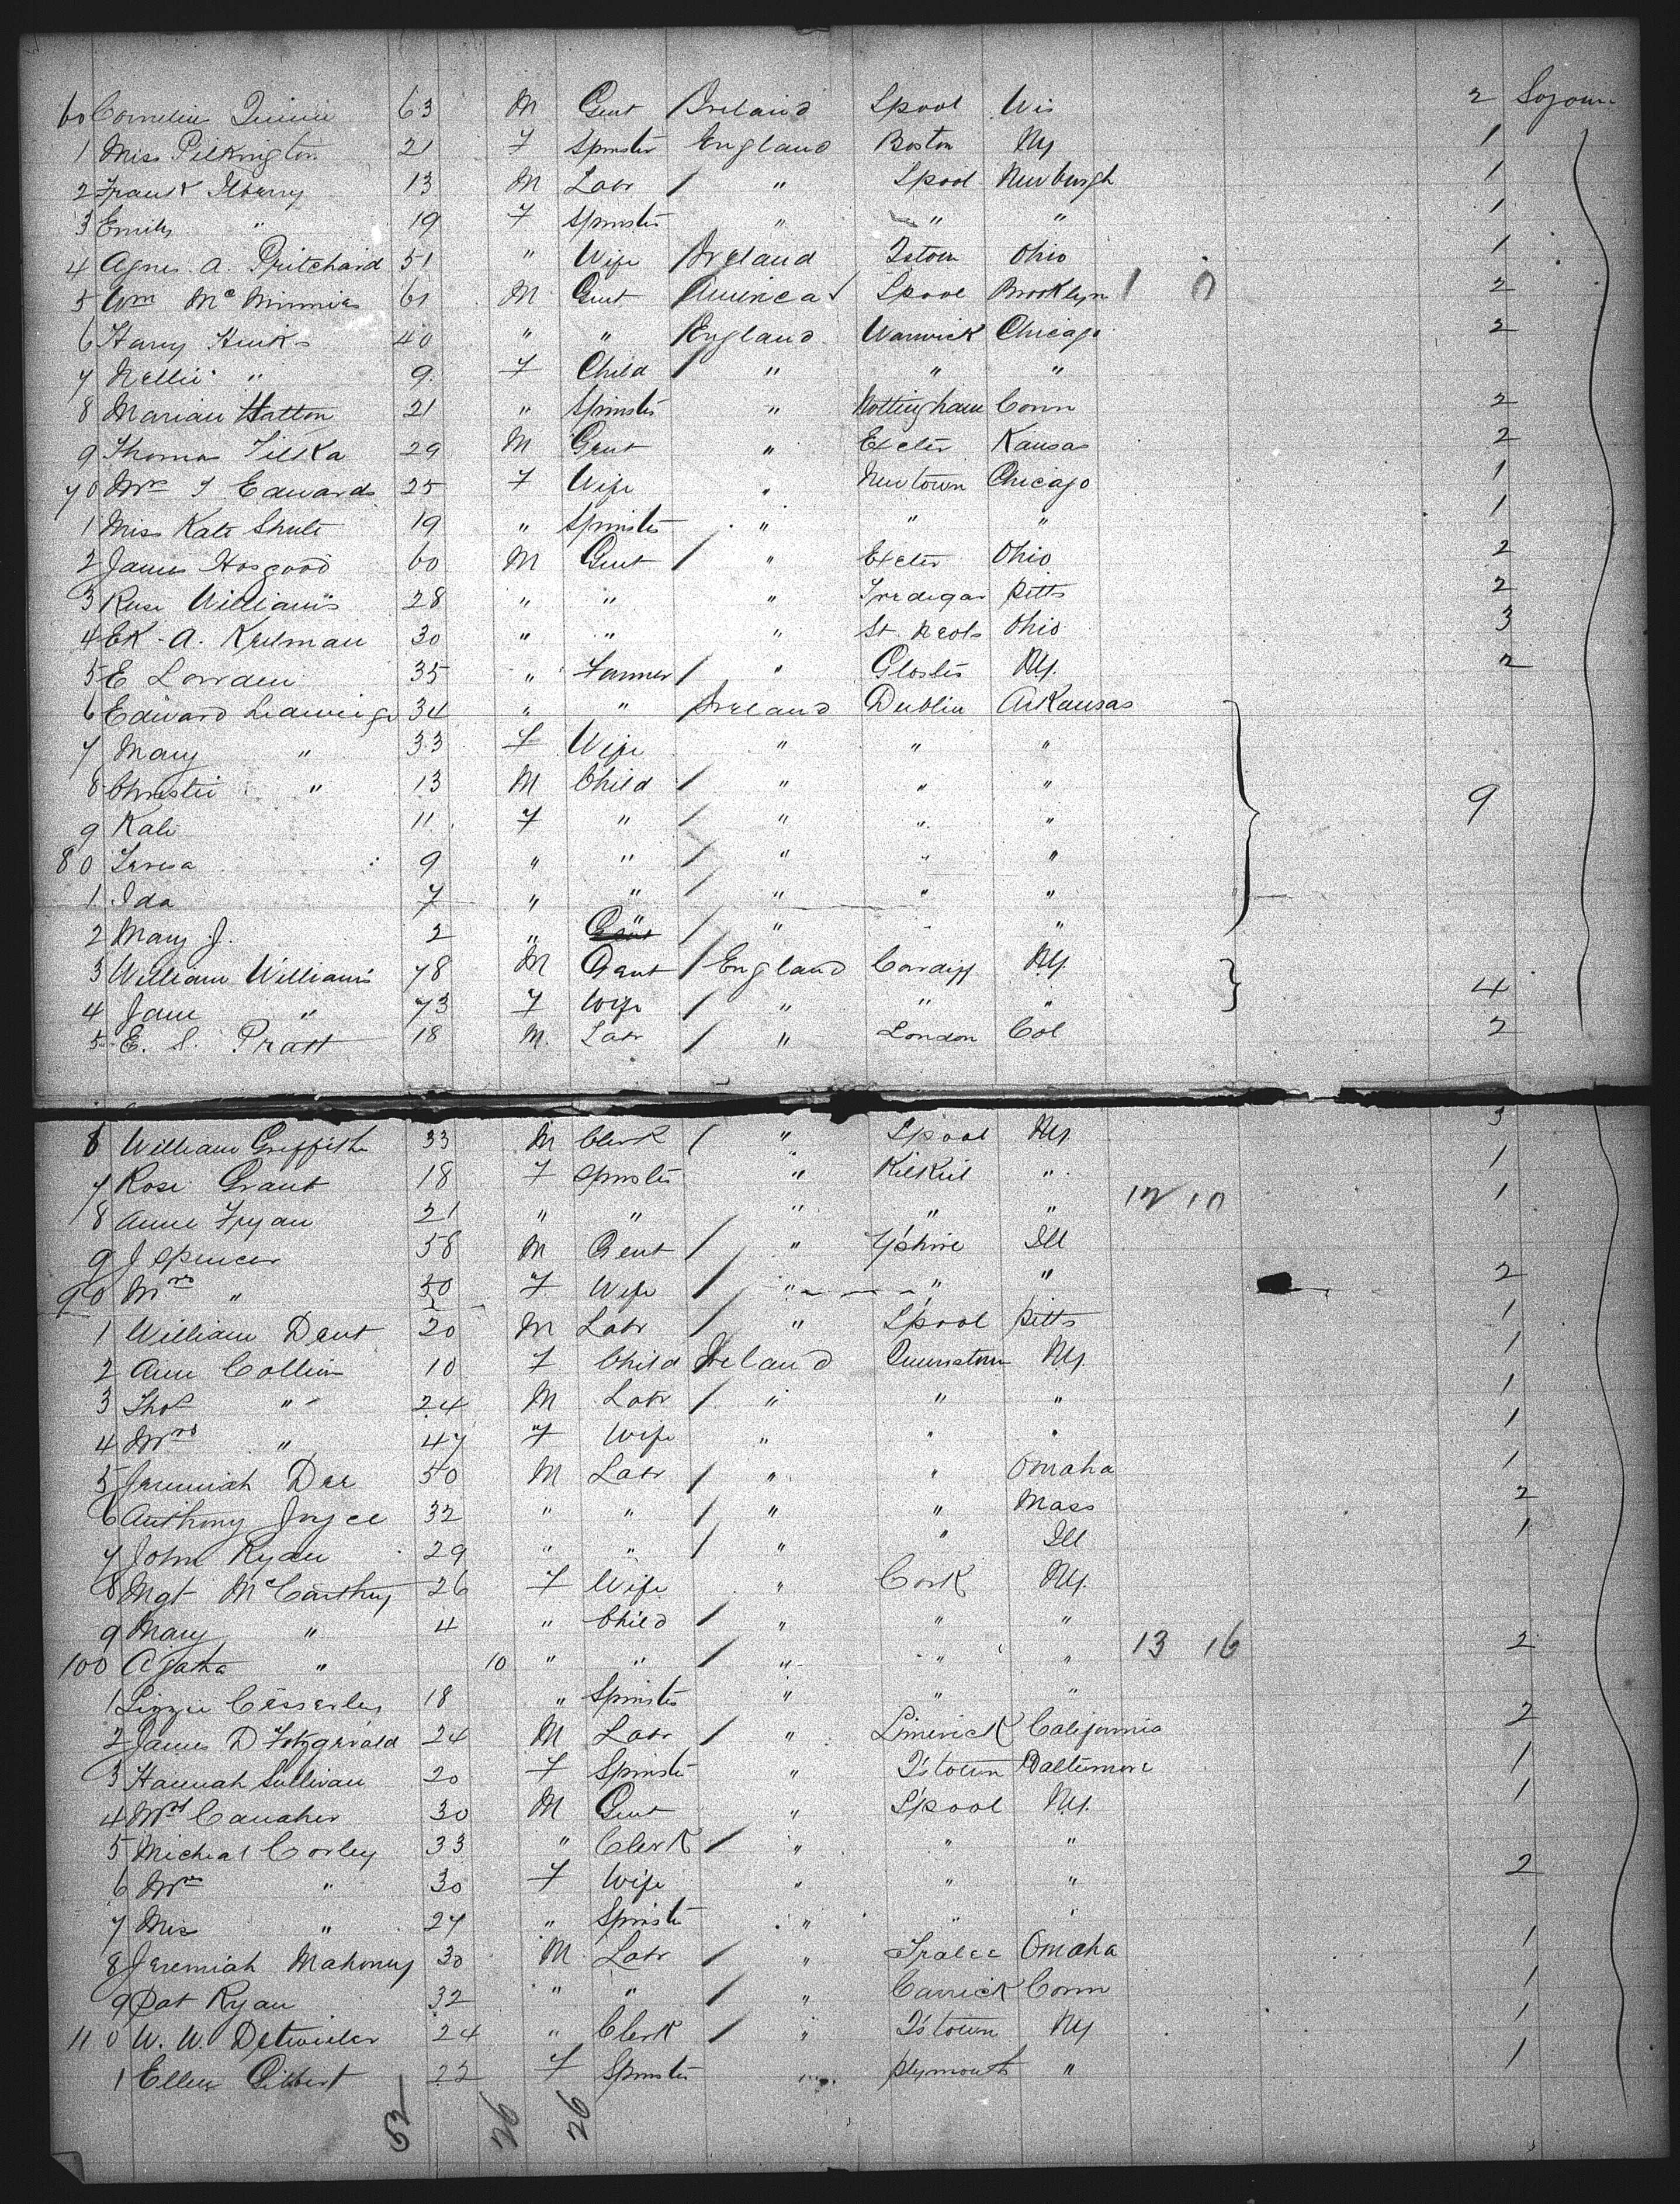 60 Cornelius 63 M Gent Ireland Lpool Wis 2 Sojourn
1 Miss Pilkington 21 F Spinster England Boston NY 1
2 Frank 13 M Labr / " Lpool Newburgh 1
3 Emily " 19 F Spinster " " " 1
4 Agnes A. Pritchard 51 " Wife Ireland Qstown Ohio 1
5 Wm Mc Minnies 61 M Gent America Lpool Brooklyn 1 2
6 Harry Hinks 40 " " England Warwick Chicago 2
7 Nellie " 9 F Child / " " "
8 Marian Hatton 21 " Spinster " Nottingham Conn 2
9 Thomas 29 M Gent " Exeter Kansas 2
70 Mrs J Edwards 25 F Wife " Newtown Chicago 1
1 Miss Kate 19 " Spinster " " " 1
2 James Hosgood 60 M Gent / " Exeter Ohio 2
3 Williams 28 " " " Tredegar Pitts 2
4 A. 30 " " " St. Neots Ohio 3
5 E 35 " Farmer / " Gloster NY. 2
6 Edward Ledwidge 34 " " Ireland Dublin Arkansas
7 Mary " 33 F Wife " " "
8 Christie " 13 M Child / " " " 9
9 Kate 11 F " / " " "
80 Teresa 9 " " / " " "
1 Ida 7 " " / " " "
2 Mary J. 2 " " / " "
3 William Williams 78 M Gent / England Cardiff NY.
4 Jane " 73 F Wife / " " " 4
5 E. S. Pratt 18 M. Labr / " London Col 2
6 William Griffith 33 M Clerk / " Lpool NY 3
7 Rose Grant 18 F Spinster " Kilkiel " 1
8 Anne Fryan 21 " " " " " 12 10 1
9 J Spencer 58 M Gent / " Y'shire Ill
90 Mrs " 50 F Wife / " " " 2
1 William Dent 20 M Labr / " Lpool Pitts 1
2 Ann Collins 10 F Child Ireland Queenstown NY. 1
3 Thos " 24 M Labr / " " " 1
4 Mrs " 47 F Wife " " " 1
5 Jeremiah Dee 50 M Labr / " " Omaha 1
6 Anthony Joyce 32 " " / " " Mass 2
7 John Ryan 29 " " / " " Ill 1
8 Mgt McCarthy 26 F Wife " Cork NY.
9 Mary " 4 " Child / " " "
100 Agatha " 10 " " / " " " 13 16 2
1 Lizzie 18 " Spinster " " "
2 James D Fitzgerald 24 M Labr / " Limerick California 2
3 Hannah Sullivan 20 F Spinster " Q'stown Baltimore 1
4 30 M Gent " Lpool NY. 1
5 Micheal Corley 33 " Clerk / " " "
6 Mrs " 30 F Wife " " " 2
7 Miss " 24 " Spinster " " "
8 Jeremiah Mahoney 30 M Labr / " Tralee Omaha 1
9 Pat Ryan 32 " " / " Carrick Conn 1
110 W. W. Detwiler 24 " Clerk / " Q'stown NY 1
1 Ellen Gilbert 22 F Spinster " Plymouth " 1
52 26 26